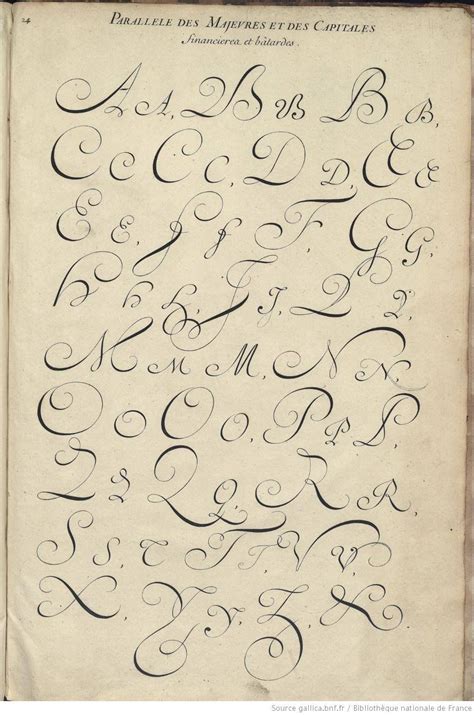 24
PARALLELE DES MAJEVRES ET DES CAPITALES
financieres et bâtardes.
A A, B B B B,
C c C C, D D, E E
E E, f f F, G G,
h h h, J J, L L,
M M M M, N N
O o O o, P P P,
Q Q Q Q, R R,
S s, T T T V V,
X, Y y, Z, &
Source gallica.bnf.fr / Bibliothèque nationale de France